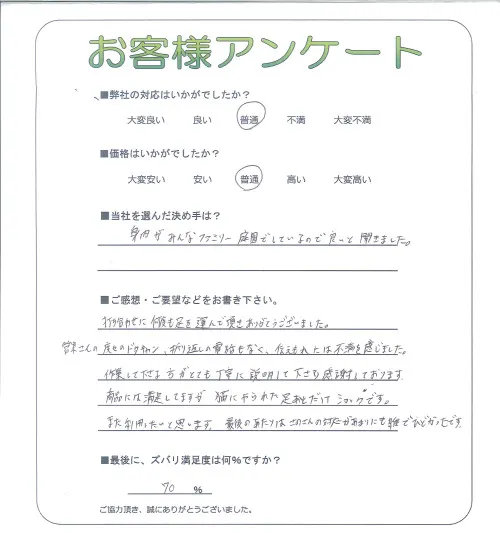 お客様アンケート
■弊社の対応はいかがでしたか？
大変良い 良い 普通 不満 大変不満
■価格はいかがでしたか？
大変安い 安い 普通 高い 大変高い
■当社を選んだ決め手は？
身内がみんなファミリー庭園でしているので良いと聞きました。
■ご感想・ご要望などをお書き下さい。
打ち合わせに何度も足を運んで頂きありがとうございました。
さんの度々のドタキャン、折り返しの電話もなく、には不満を感じました。
作業して下さる方がとても丁寧に説明して下さり感謝しております
商品には満足してますが 猫にやられた足跡だけショックです。
また利用したいと思います 最後のあたりは の対応があまりにも雑でひどかったです
■最後に、ズバリ満足度は何％ですか？
70 ％
ご協力頂き、誠にありがとうございました。